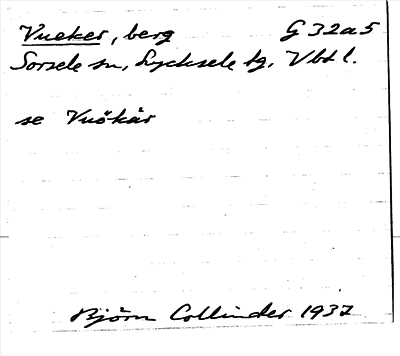 Vueker, berg G 32a5
Sorsele sn, Lycksele tg, Vbt l.
se Vuökår
Björn Collinder 1937